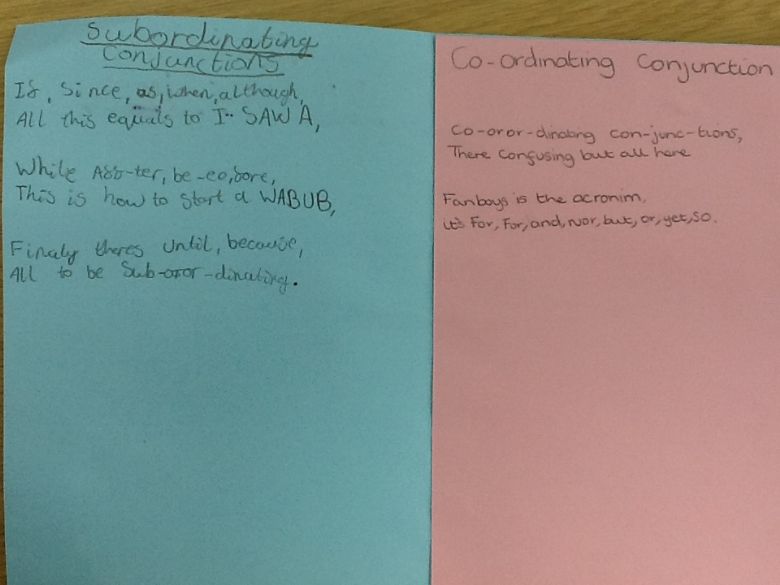 Subordinating
Conjunctions
If, Since, as, when, although,
All this equals to I SAWA,
While Aff-ter, be-eo,fore,
This is how to start a WABUB,
Finaly theres until, because,
All to be Sub-oror-dinating.
Co-ordinating Conjunction
Co-oror-dinating con-junc-tions,
There confusing but all here
Fanboys is the acronim,
it's For, For, and, nor, but, or, yet, so.